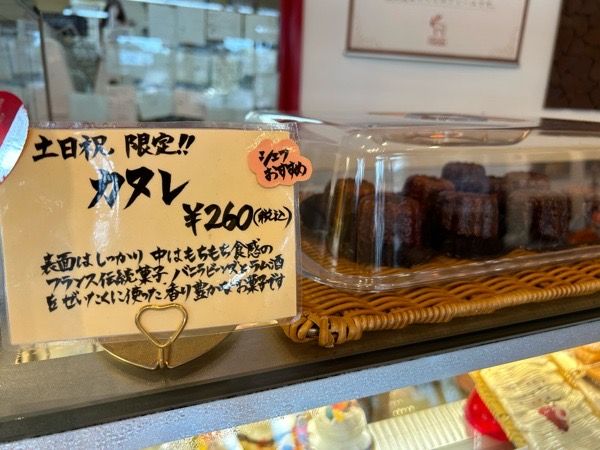 土日祝、限定!!
シェフ
おすすめ
カヌレ
¥260(税込)
表面はしっかり 中はもちもち食感の
フランス伝統菓子.バニラビーンズとラム酒
をぜいたくに使った香り豊かなお菓子です